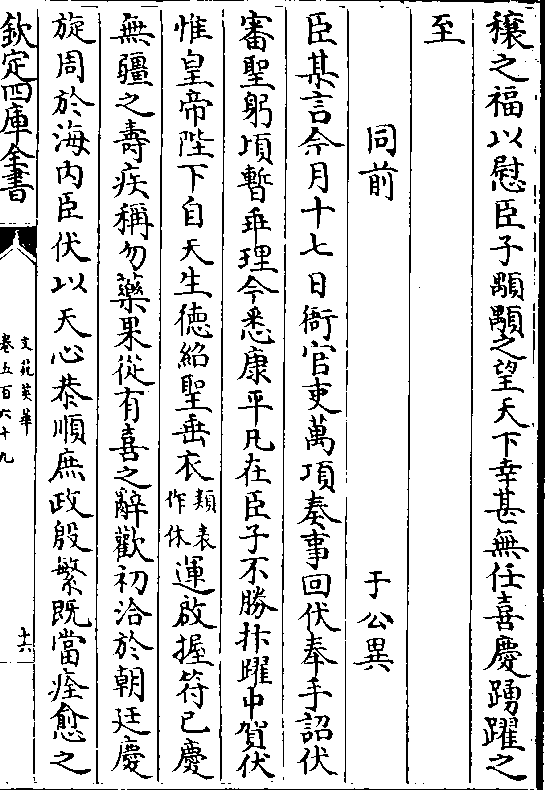 穰之福以慰臣子顒顒之望天下幸甚無任喜慶踴躍之
至
同前
于公異
臣某言今月十七日衙官吏萬頃奏事回伏奉手詔伏
審聖躬頃暫乖理今悉康平凡在臣子不勝抃躍中賀伏
惟皇帝陛下自天生徳紹聖垂衣類表作休運啟握符已慶
無疆之壽疾稱勿藥果從有喜之辭歡初洽於朝廷慶
旋周於海内臣伏以天心恭順庶政殷繁既當痊愈之
欽定四庫全書
文苑英華
卷五百六十九
十六